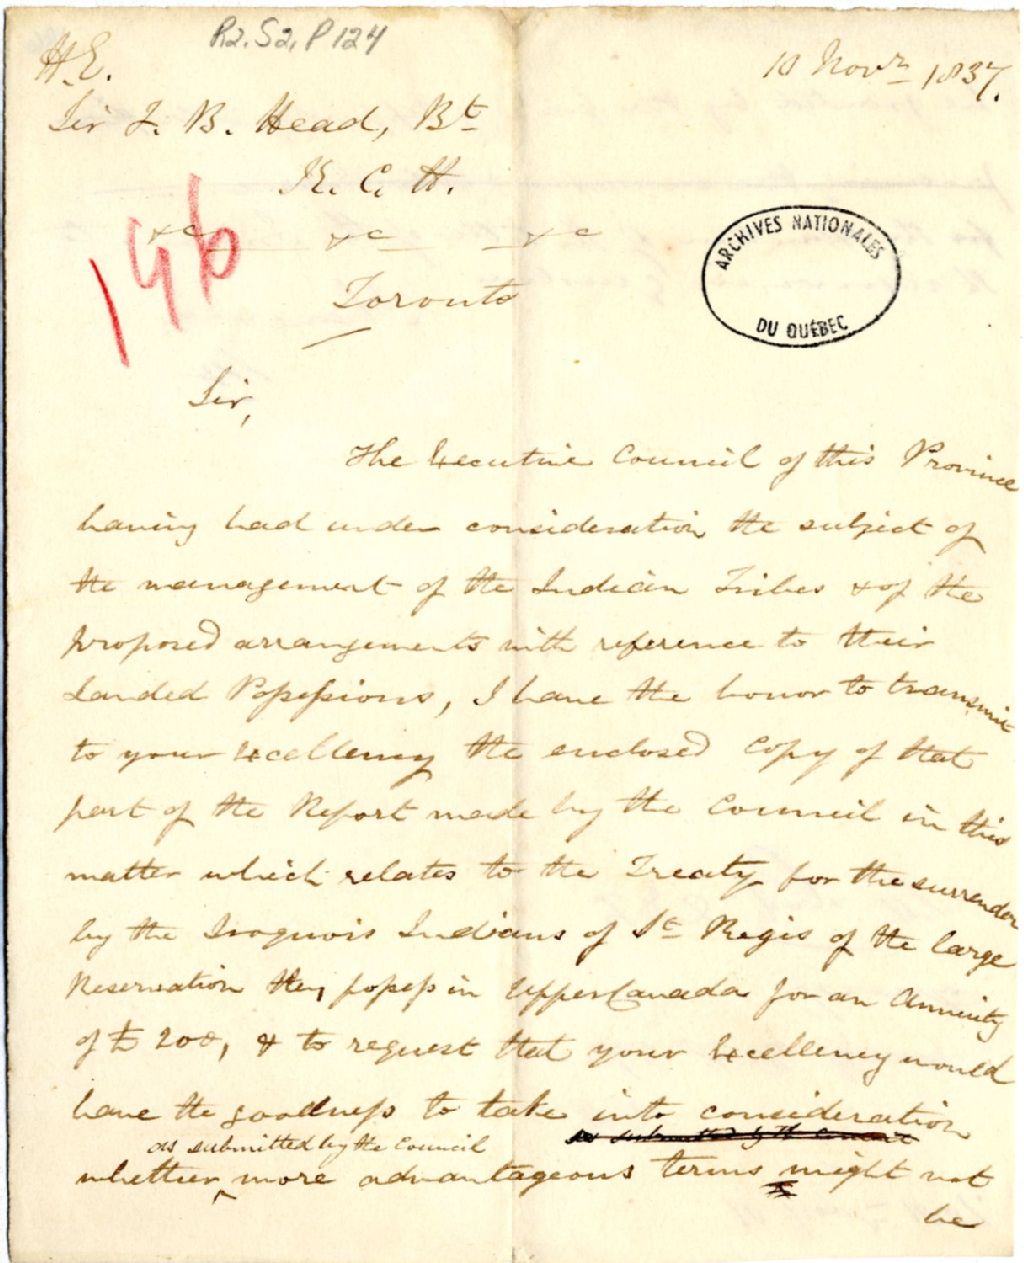 R2. S2, P 124
H.E.
10 Novr 1837.
Sir F. B. Head, Bt
K. C. H.
&c &c &c
196
Toronto
ARCHIVES NATIONALES
DU QUÉBEC
Sir,
The Executive Council of this Province
having had under consideration the subject of
the management of the Indian Tribes & of the
proposed arrangements with reference to their
Landed Possessions, I have the honor to transmit
to your Excellency the enclosed Copy of that
part of the Report made by the Council in this
matter which relates to the Treaty for the surrender
by the Iroquois Indians of St Regis of the large
Reservation they possess in Upper Canada for an Annuity
of £ 200, & to request that your Excellency would
have the goodness to take into consideration
as submitted by the Council
as submitted by the Council
whether ‸ more advantageous terms might not
be